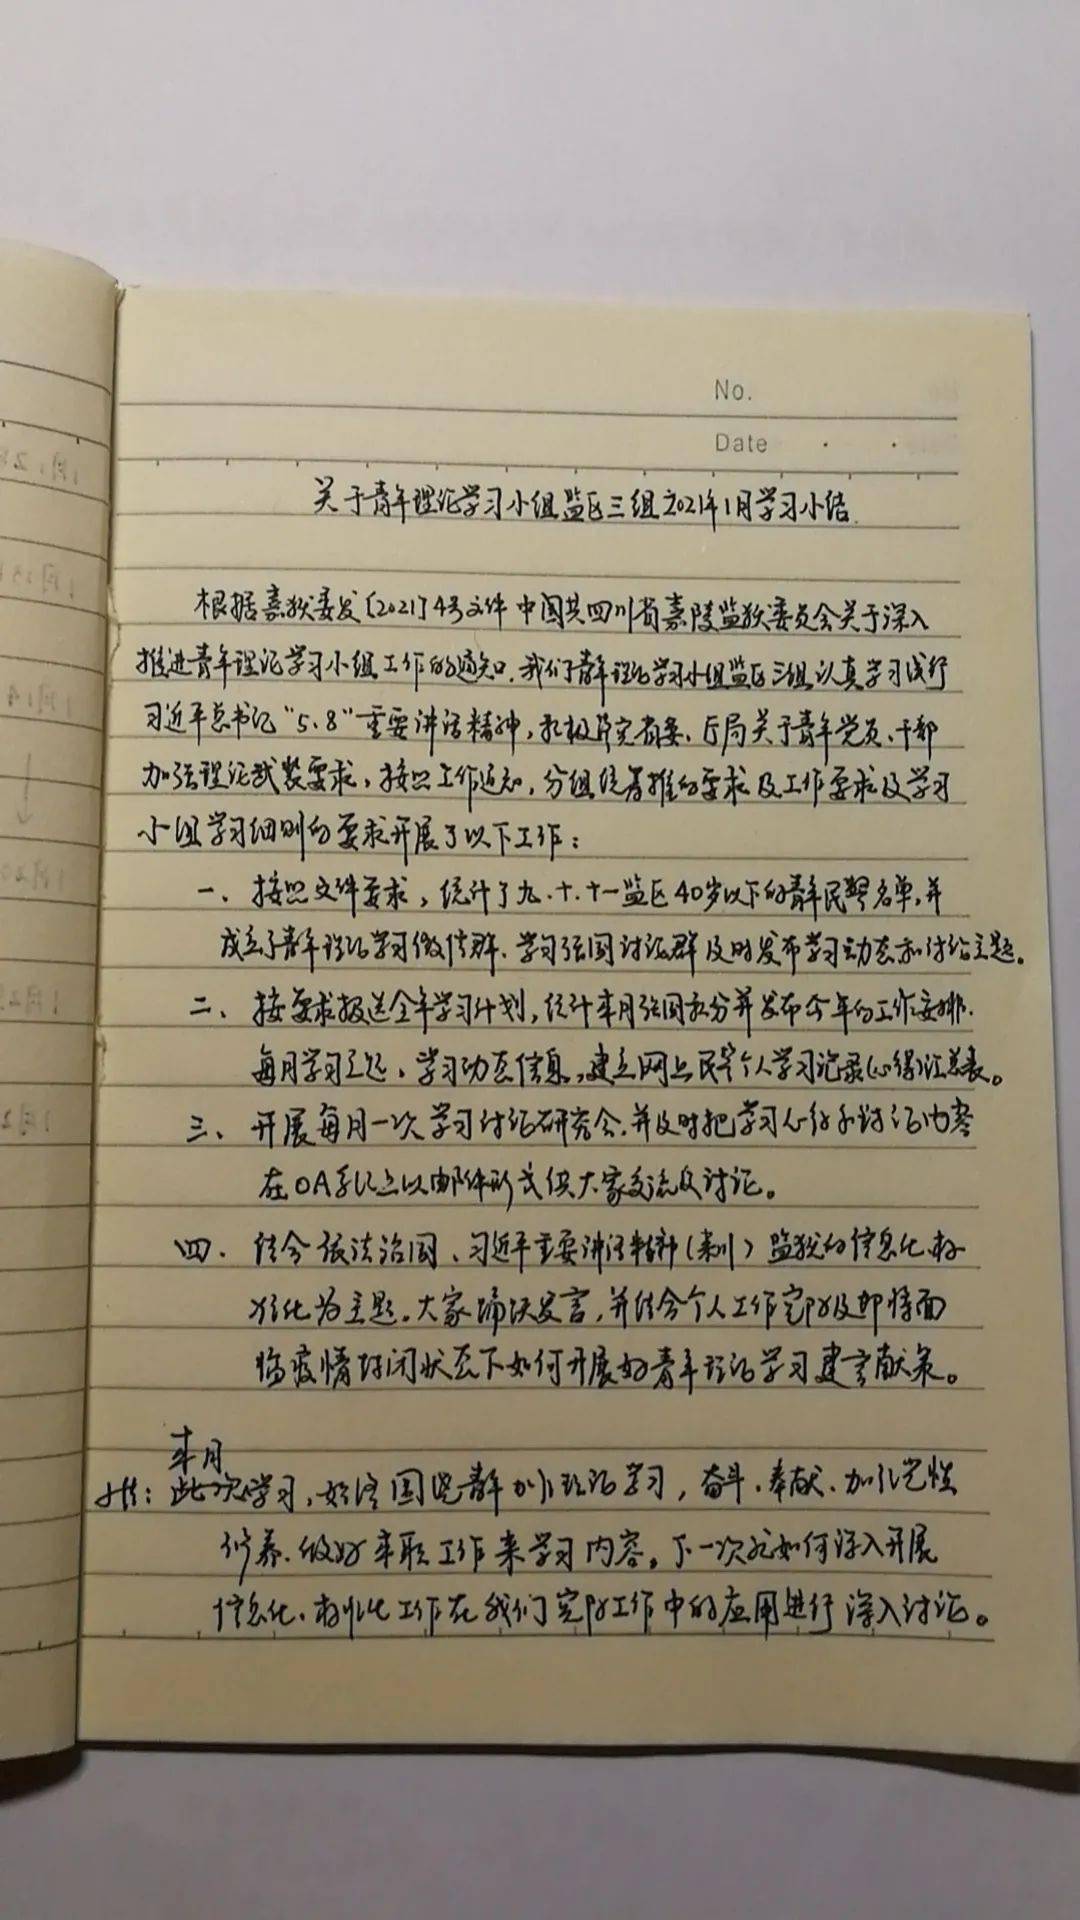 No.
Date
关于青年理论学习小组监区三组2021年1月学习小结
根据嘉狱委发〔2021〕4号文件 中国共四川省嘉陵监狱委员会关于深入
推进青年理论学习小组工作的通知,我们青年理论学习小组监区三组认真学习践行
习近平总书记“5.8”重要讲话精神,积极落实省委、厅局关于青年党员、干部
加强理论武装要求,按照工作通知,分组统筹推的要求及工作要求及学习
小组学习细则的要求开展了以下工作:
一、按照文件要求,统计了九、十、十一监区40岁以下的青年民警名单,并
成立了青年理论学习微信群、学习强国讨论群及时发布学习动态和讨论主题。
二、按要求报送全年学习计划,统计本月强国积分并发布今年的工作安排、
每月学习主题、学习动态信息,建立网上民警个人学习记录(心得)汇总表。
三、开展每月一次学习讨论研究会,并及时把学习心得和讨论内容
在OA系统上以邮件形式供大家交流及讨论。
四、结合依法治国、习近平重要讲话精神(来川)监狱的信息化、标
准化为主题。大家踊跃发言,并结合个人工作实际及即将面
临疫情封闭状态下如何开展好青年理论学习建言献策。
本月
此次学习,始终围绕青年加强理论学习,奋斗、奉献、加强党性
修养、做好本职工作来学习内容。下一次就如何深入开展
信息化、标准化工作在我们实际工作中的应用进行深入讨论。